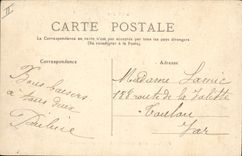 CARTE POSTALE
La Correspondance au recto n'est pas acceptée par tous les pays étrangers
(Se renseigner à la Poste)
Correspondance
Adresse
Bons baisers
à tous deux
Madame
188 route de la Valette
Toulon
Var